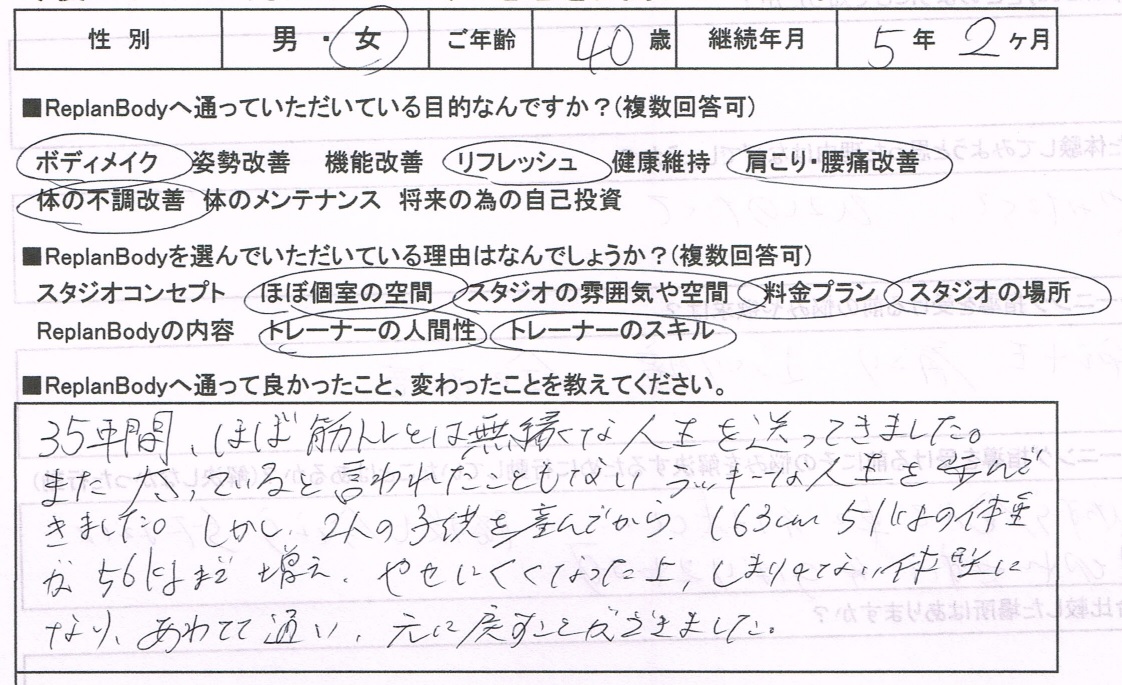 性 別 男 ・ 女 ご年齢 40 歳 継続年月 5 年 2 ヶ月
■ReplanBodyへ通っていただいている目的なんですか？(複数回答可)
ボディメイク 姿勢改善 機能改善 リフレッシュ 健康維持 肩こり・腰痛改善
体の不調改善 体のメンテナンス 将来の為の自己投資
■ReplanBodyを選んでいただいている理由はなんでしょうか？(複数回答可)
スタジオコンセプト ほぼ個室の空間 スタジオの雰囲気や空間 料金プラン スタジオの場所
ReplanBodyの内容 トレーナーの人間性 トレーナーのスキル
■ReplanBodyへ通って良かったこと、変わったことを教えてください。
35年間、ほぼ筋トレとは無縁な人生を送ってきました。
また太っていると言われたこともないラッキーな人生を歩んで
きました。しかし、2人の子供を産んでから、163cm 51kgの体重
が 56kgまで増え、やせにくくなった上、しまりのない体型に
なり、あわてて通い、元に戻すことができました。